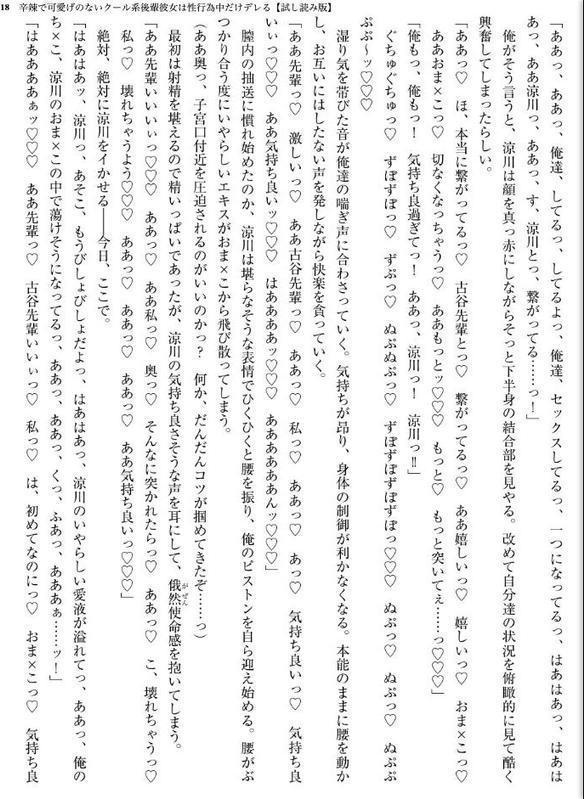 18　辛辣で可愛げのないクール系後輩彼女は性行為中だけデレる【試し読み版】
「ああっ、ああっ、俺達、してるっ、してるよっ、俺達、セックスしてるっ、一つになってるっ、はあはあっ、はあは
あっ、ああ涼川っ、ああっ、す、涼川とっ、繋がってる……っ！」
　俺がそう言うと、涼川は顔を真っ赤にしながらそっと下半身の結合部を見やる。改めて自分達の状況を俯瞰的に見て酷く
興奮してしまったらしい。
「ああっ♡　ほ、本当に繋がってるっ♡　古谷先輩とっ♡　繋がってるっ♡　ああ嬉しいっ♡　嬉しいっ♡　おま×こっ♡
ああおま×こっ♡　切なくなっちゃうっ♡　ああもっとッ♡♡♡　もっと♡　もっと突いてぇ……っ♡♡♡」
「俺もっ、俺もっ！　気持ち良過ぎてっ！　ああっ、涼川っ！　涼川っ‼」
　ぐちゅぐちゅっ♡　ずぼずぼっ♡　ずぷっ♡　ぬぷぬぷっ♡　ずぼずぼずぼずぼっ♡♡♡　ぬぷっ♡　ぬぷっ♡　ぬぷぬ
ぷぷ～ッ♡♡♡
　湿り気を帯びた音が俺達の喘ぎ声に合わさっていく。気持ちが昂り、身体の制御が利かなくなる。本能のままに腰を動か
し、お互いにはしたない声を発しながら快楽を貪っていく。
「ああ先輩っ♡　激しいっ♡　ああ古谷先輩っ♡　ああっ♡　私っ♡　ああっ♡　あっ♡　気持ち良いっ♡　気持ち良
いぃっ♡♡♡　ああ気持ち良いッ♡♡♡　はああああッ♡♡♡　ああああああんッ♡♡♡」
　膣内の抽送に慣れ始めたのか、涼川は堪らなそうな表情でひくひくと腰を振り、俺のピストンを自ら迎え始める。腰がぶ
つかり合う度にいやらしいエキスがおま×こから飛び散ってしまう。
（ああ奥っ、子宮口付近を圧迫されるのがいいのかっ？　何か、だんだんコツが掴めてきたぞ……っ）
　最初は射精を堪えるので精いっぱいであったが、涼川の気持ち良さそうな声を耳にして、俄然使命感を抱いてしまう。
「ああ先輩いいいぃっ♡♡♡　ああっ♡　ああ私っ♡　奥っ♡　そんなに突かれたらっ♡　ああっ♡　こ、壊れちゃうっ♡
私っ♡　壊れちゃうよう♡♡♡　ああっ♡　ああっ♡　ああっ♡　ああ気持ち良いっ♡♡♡」
　絶対、絶対に涼川をイかせる――今日、ここで。
「はあはあッ、涼川っ、あそこ、もうびしょびしょだよっ、はあはあっ、涼川のいやらしい愛液が溢れてっ、ああっ、俺の
ち×こ、涼川のおま×この中で蕩けそうになってるっ、ああっ、ああっ、くっ、ふあっ、あああぁ……ッ！」
「はあああああぁッ♡♡♡　ああ先輩っ♡　古谷先輩いいぃっ♡　私っ♡　は、初めてなのにっ♡　おま×こっ♡　気持ち良